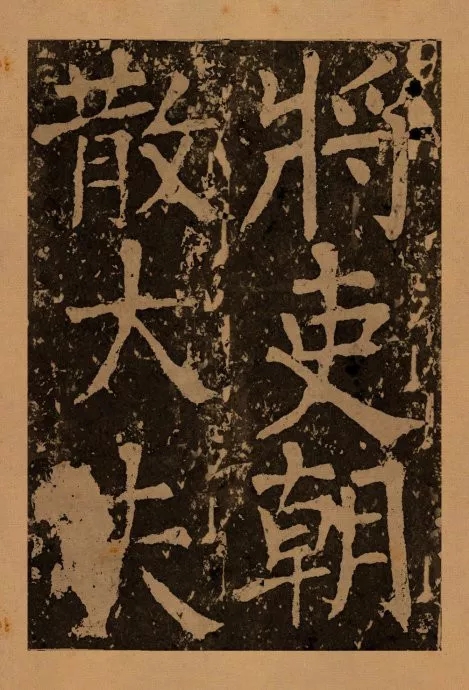 將吏朝
散大夫